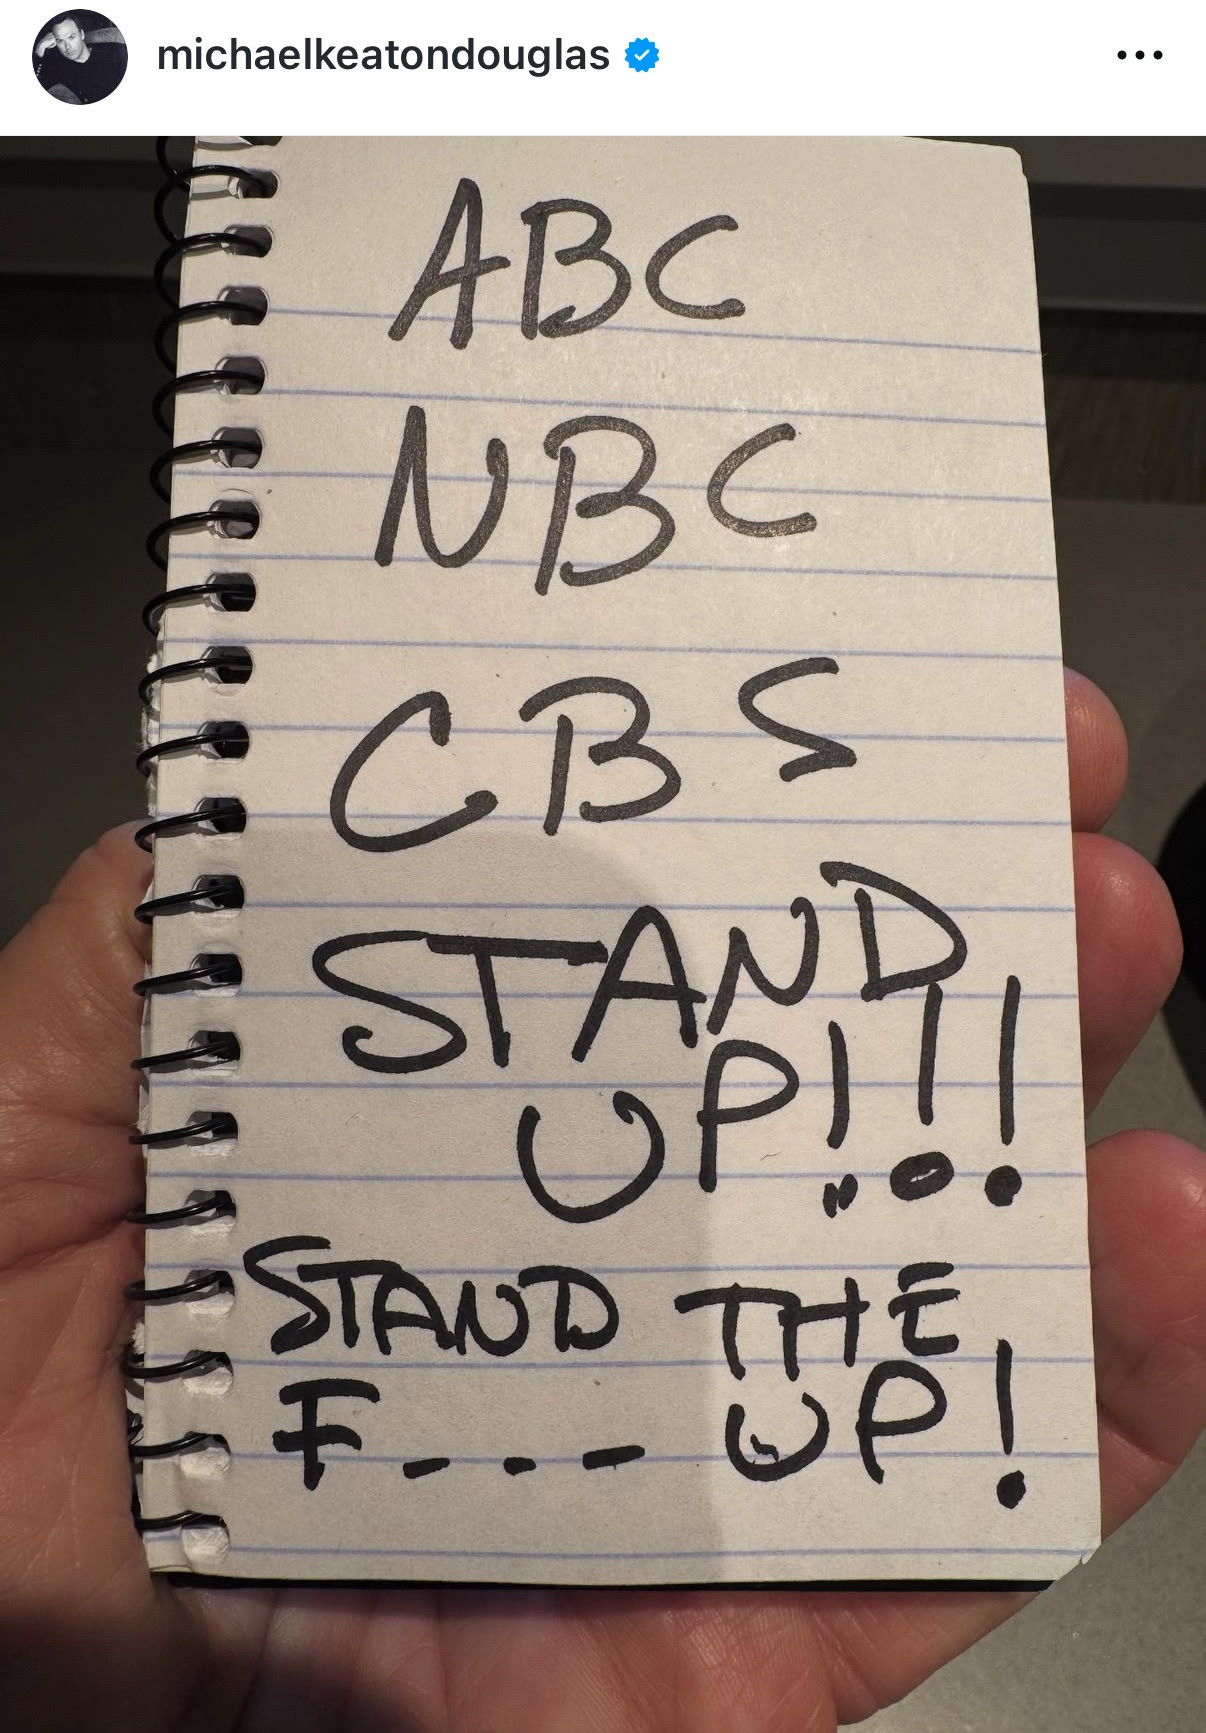 michaelkeatondouglas
ABC
NBC
CBS
STAND
UP!!!
STAND THE
F--- UP!